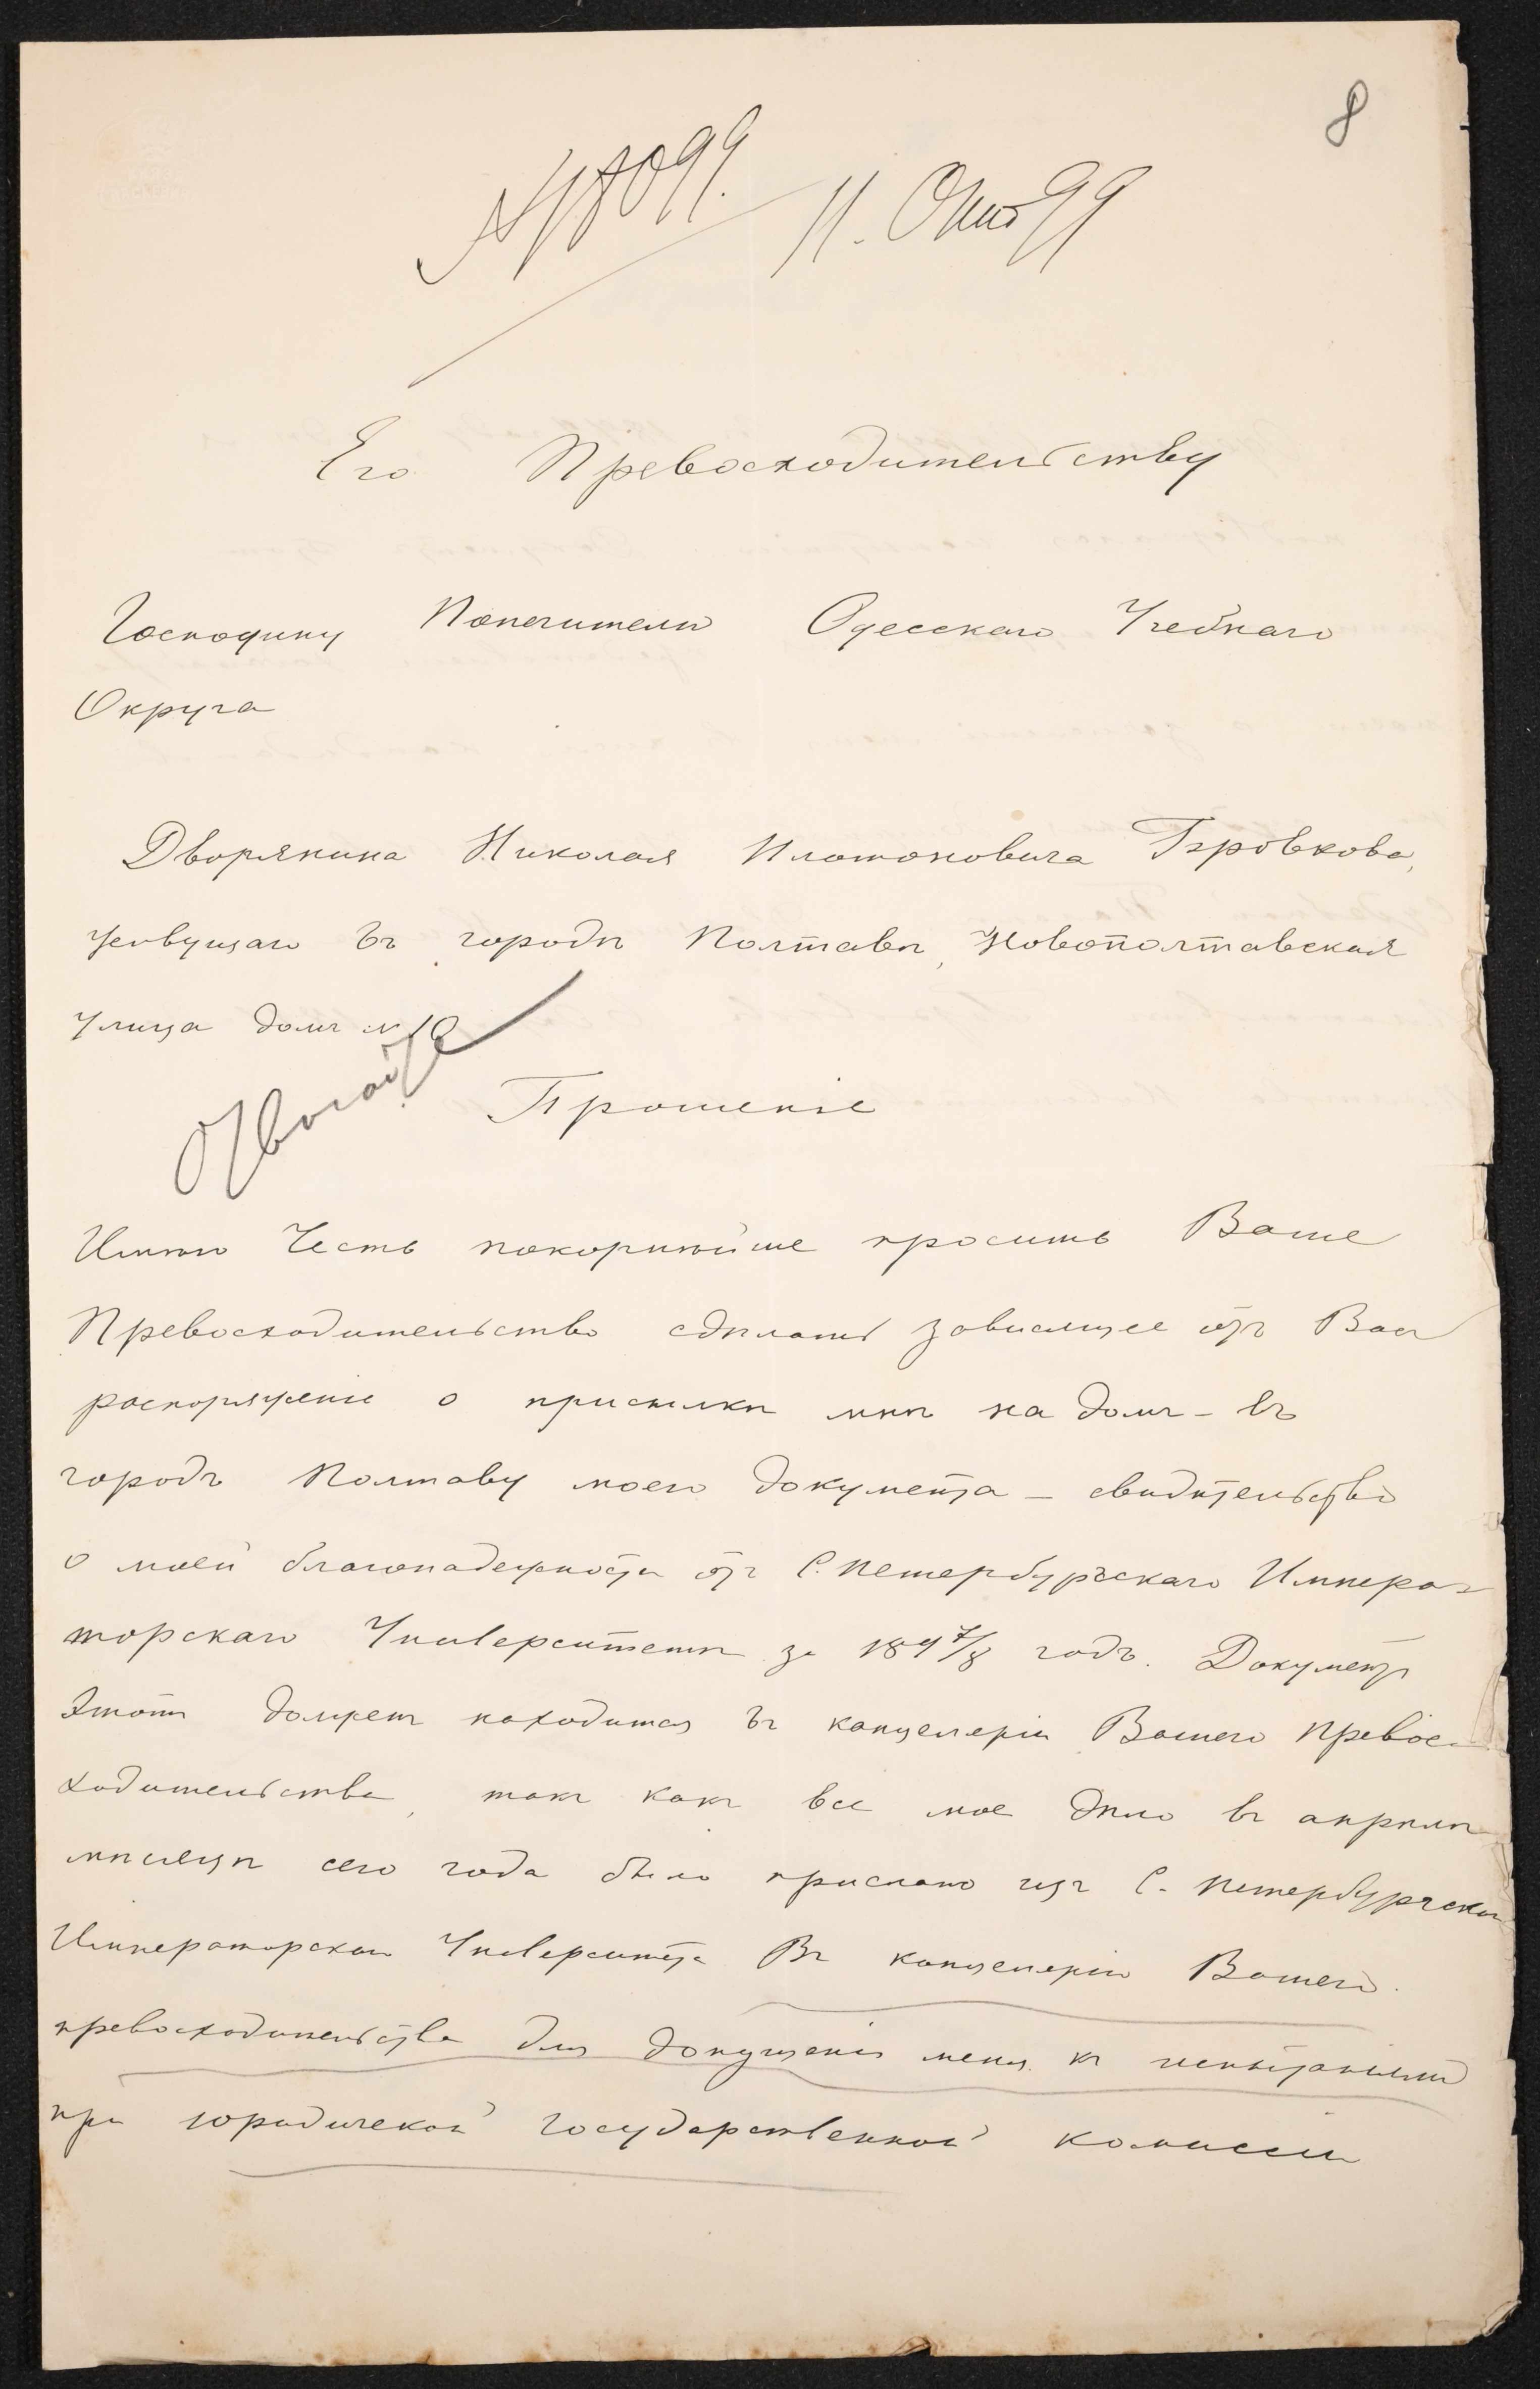 8
№ 18099. 11. Окт 99
Его Превосходительству
Господину Попечителю Одесскаго Учебнаго
Округа
Дворянина Николая Платоновича
живущаго въ городѣ Полтавѣ, Новополтавская
улица домъ № 10
Прошеніе
Имѣю честь покорнѣйше просить Ваше
Превосходительство сдѣлать зависящее отъ Васъ
распоряженіе о присылкѣ мнѣ на домъ - въ
городъ Полтаву моего документа - свидѣтельство
о моей благонадежности отъ С. Петербургскаго Импера-
торскаго Университета за 1897/8 годъ. Документъ
этотъ долженъ находится въ канцеляріи Вашего Превос-
ходительства, такъ какъ все мое дѣло въ апрѣлѣ
мѣсяцѣ сего года было прислано изъ С. Петербургскаго
Императорскаго Университета въ канцелярію Вашего
превосходительства для допущенія меня къ испытаніямъ
при юридической государственной комиссіи